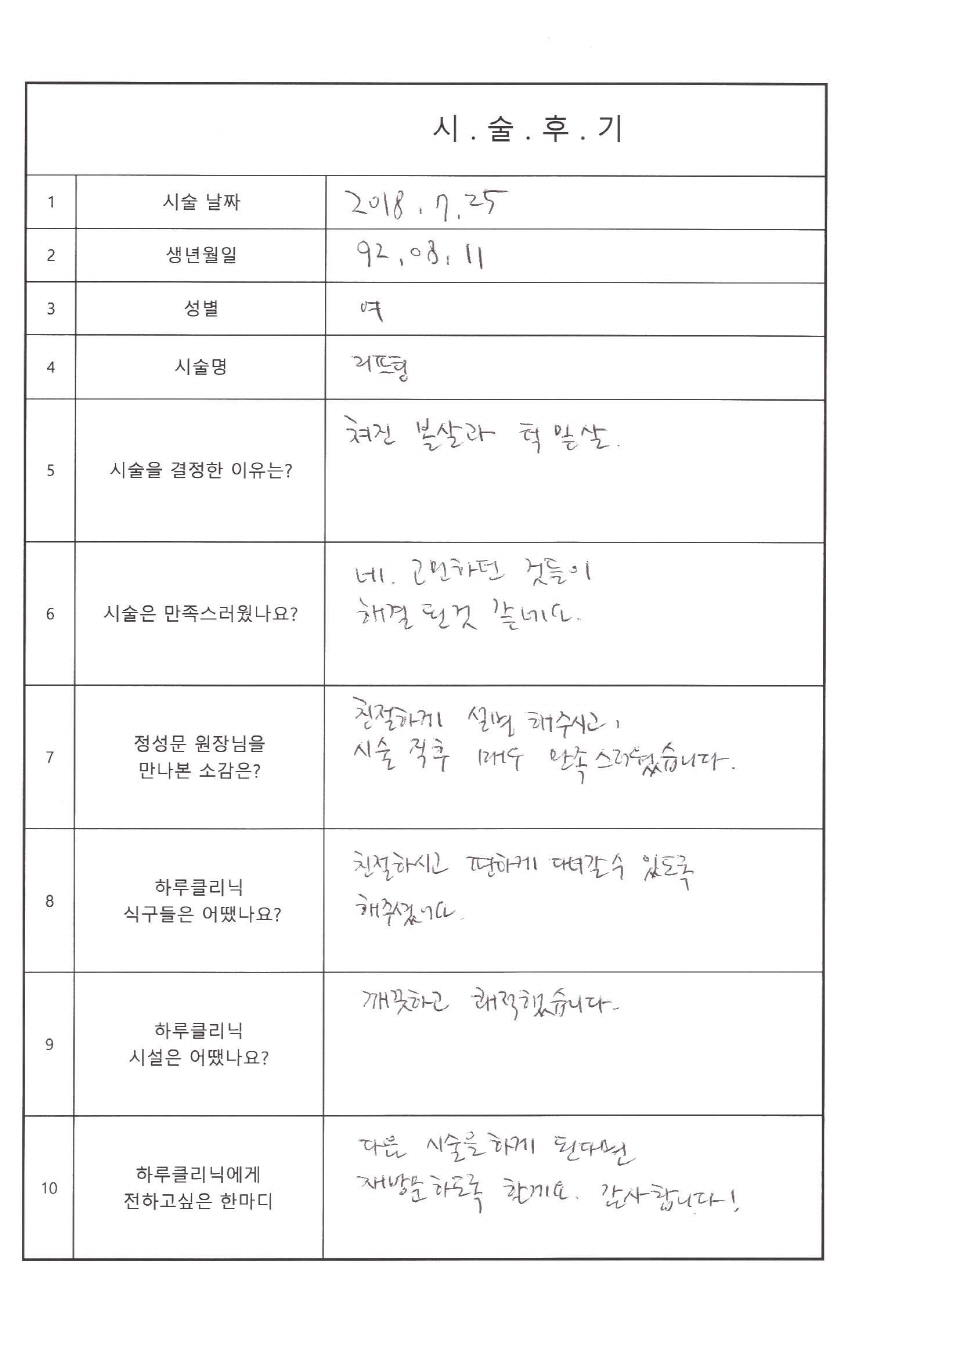 시.술.후.기
1 시술 날짜 2018. 7. 25
2 생년월일 92. 08. 11
3 성별 여
4 시술명 리프팅
5 시술을 결정한 이유는? 쳐진 볼살과 턱 밑살.
네. 고민하던 것들이
6 시술은 만족스러웠나요?
해결 된것 같네요.
친절하게 설명 해주시고,
7 정성문 원장님을
만나본 소감은?
시술 직후 매우 만족스러웠습니다.
친절하시고 편하게 다녀갈수 있도록
8 하루클리닉
식구들은 어땠나요?
해주셨어요.
깨끗하고 쾌적했습니다.
9 하루클리닉
시설은 어땠나요?
다른 시술을 하게 된다면
10 하루클리닉에게
전하고싶은 한마디
재방문 하도록 할게요. 감사합니다!